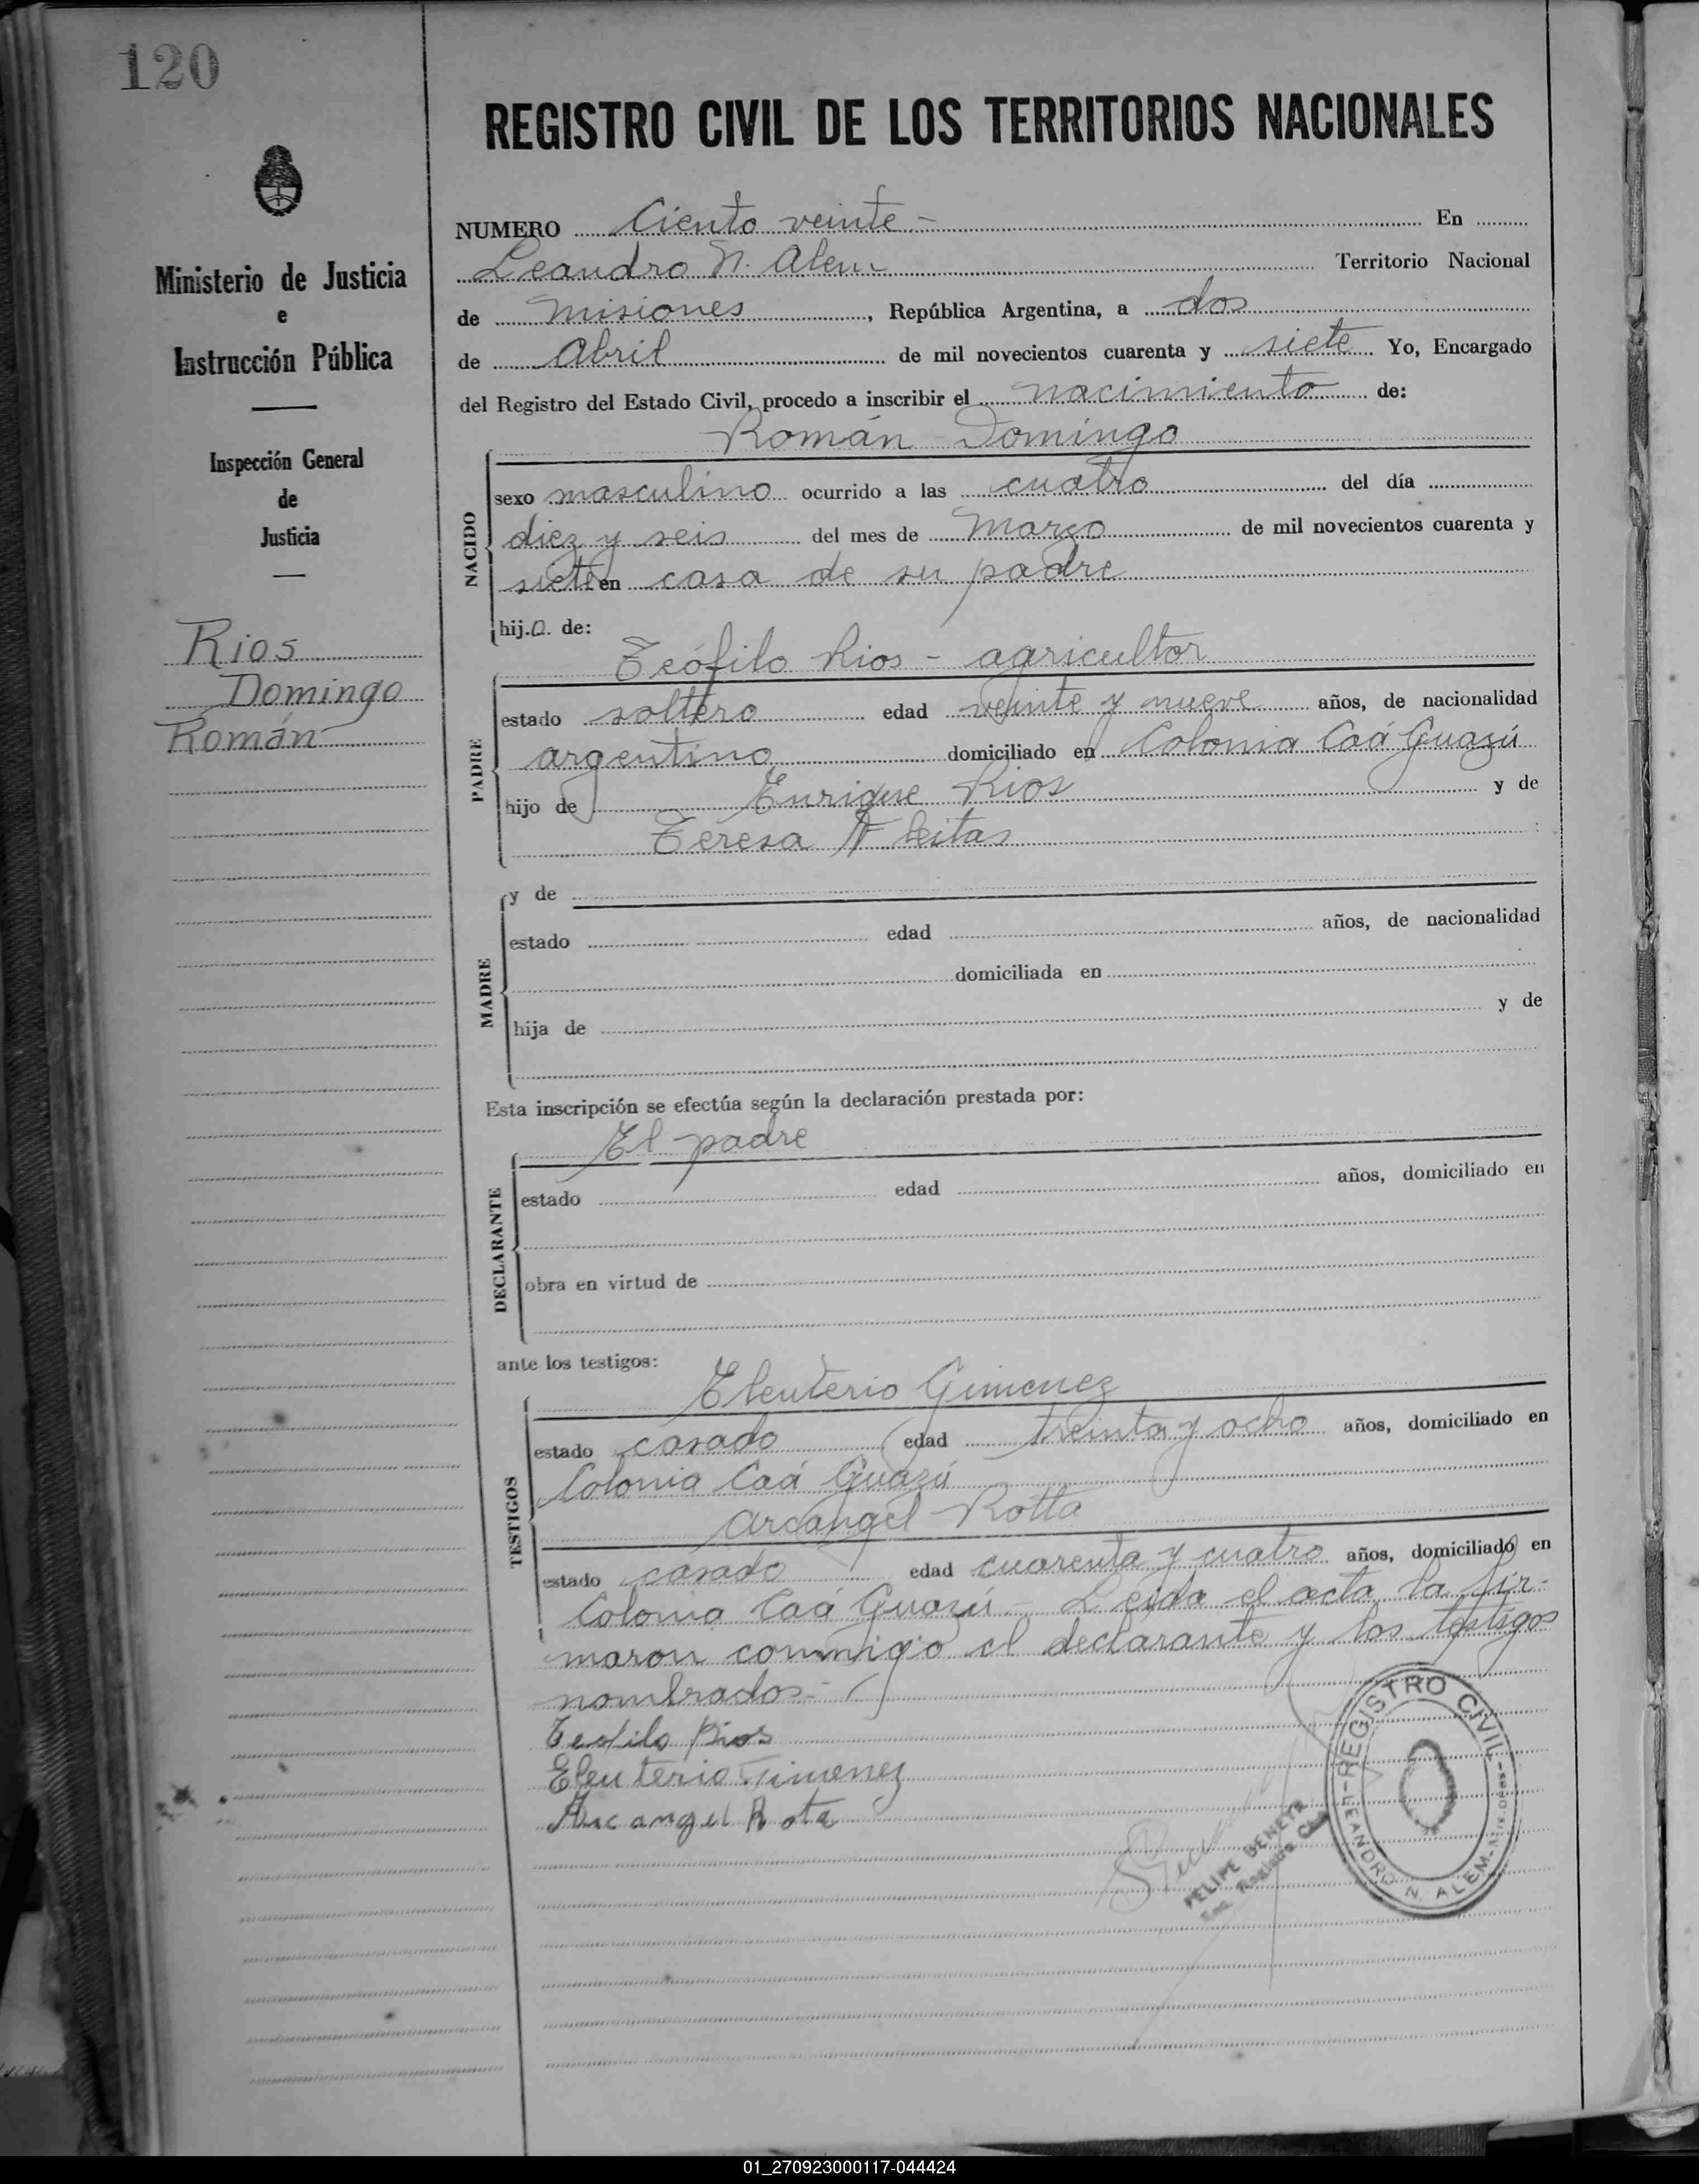 120
REGISTRO CIVIL DE LOS TERRITORIOS NACIONALES
Ministerio de Justicia
e
Instrucción Pública
Inspección General
de
Justicia
Rios
Domingo
Román
NUMERO Ciento veinte - En
Leandro N. Alem Territorio Nacional
de Misiones, República Argentina, a dos
de Abril de mil novecientos cuarenta y siete Yo, Encargado
del Registro del Estado Civil, procedo a inscribir el nacimiento de:
Román Domingo
NACIDO
sexo masculino ocurrido a las cuatro del día
diez y seis del mes de Marzo de mil novecientos cuarenta y
siete en casa de su padre
hij.o. de:
Teófilo Rios - agricultor
PADRE
estado soltero edad veinte y nueve años, de nacionalidad
argentino domiciliado en Colonia Caá Guazú
hijo de Enrique Rios y de
Teresa Fleitas
MADRE
y de
estado edad años, de nacionalidad
domiciliada en
hija de y de
Esta inscripción se efectúa según la declaración prestada por:
El padre
DECLARANTE
estado edad años, domiciliado en
obra en virtud de
ante los testigos:
Eleuterio Gimenez
TESTIGOS
estado casado edad treinta y ocho años, domiciliado en
Colonia Caá Guazú
Arcangel Rotta
estado casado edad cuarenta y cuatro años, domiciliado en
Colonia Caá Guazú - Leida el acta la fir-
maron conmigo el declarante y los testigos
nombrados -
Teofilo Rios
Eleuterio Gimenez
Arcangel Rota
FELIPE BENEYR
Enc. Registro Civil
REGISTRO CIVIL
LEANDRO N. ALEM - MISIONES
01_270923000117-044424